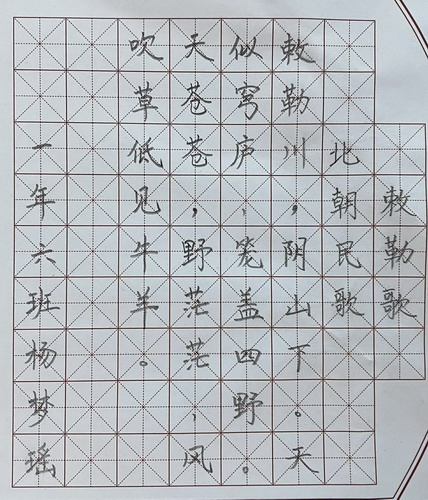 敕勒歌
北朝民歌
敕勒川，阴山下。天
似穹庐，笼盖四野。
天苍苍，野茫茫，风
吹草低见牛羊。
一年六班杨梦瑶